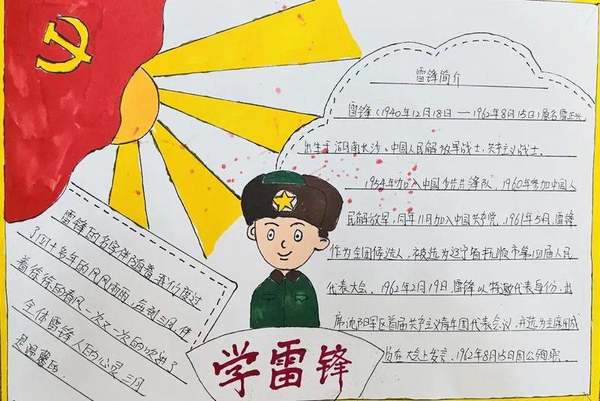 雷锋简介
雷锋(1940年12月18日—1962年8月15日)原名雷正兴
出生于湖南长沙、中国人民解放军战士、共产主义战士、
1954年加入中国少先队、1960年参加中国人
民解放军、同年11月加入中国共产党、1961年5月,雷锋
作为全团候选人,被选为辽宁省抚顺市第四届人民
代表大会、1962年2月19日,雷锋以特邀代表身份,出
席沈阳军区首届共产主义青年团代表会议,并选为主席团成
员在大会上发言、1962年8月15日因公殉职.
雷锋的名字伴随着我们度过
了几十多年的风风雨雨,每到三月,伴
着徐徐的春风一次又一次的吹进了
全体雷锋人的心灵,三月
是温馨的
学雷锋